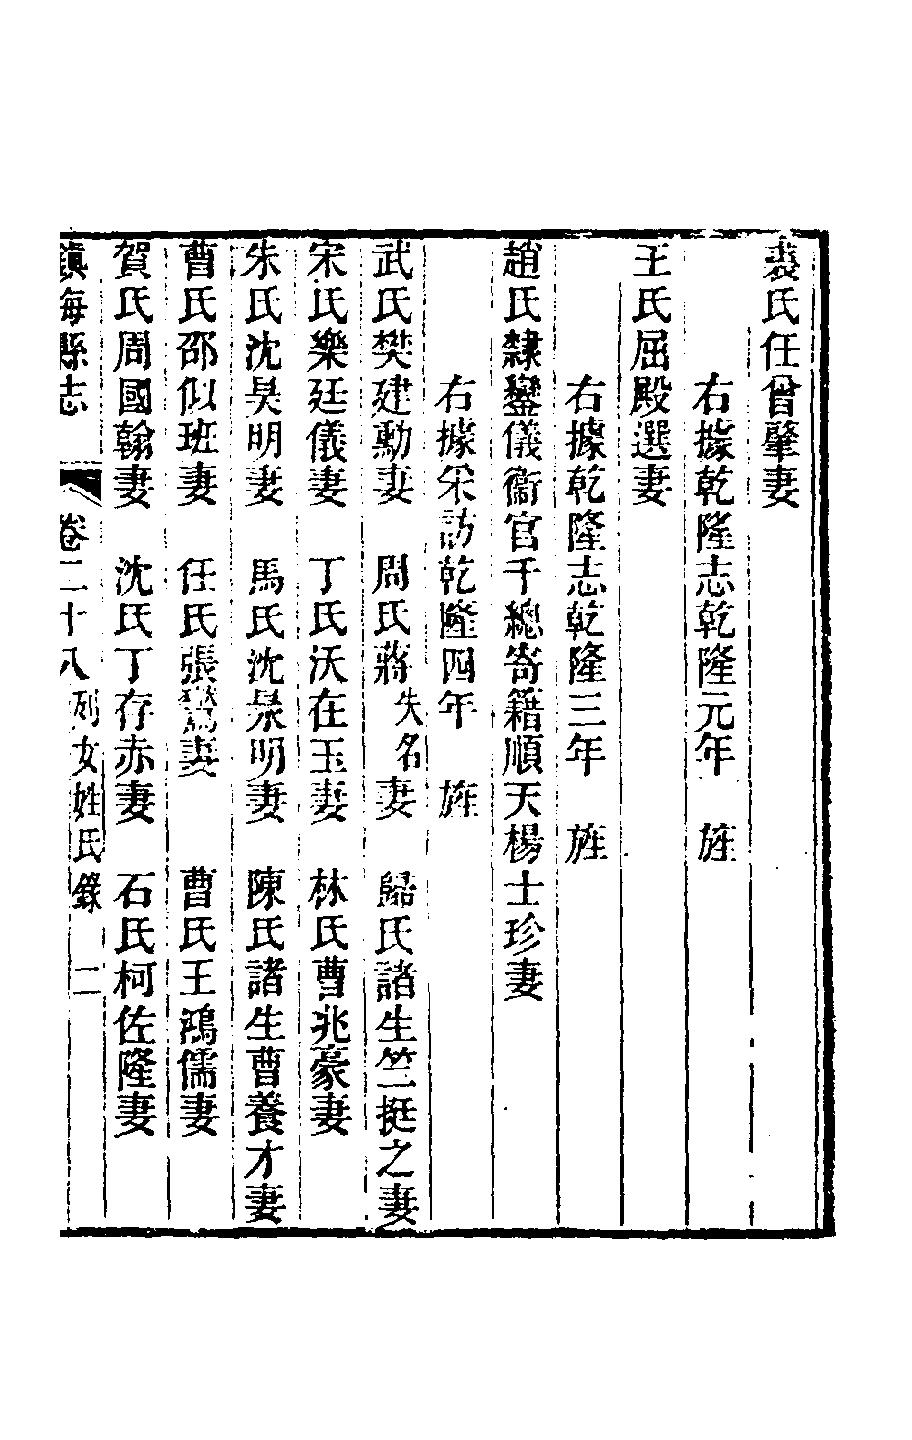 裘氏任曾肇妻
右據乾隆志乾隆元年　旌
王氏屈殿選妻
右據乾隆志乾隆三年　旌
趙氏隸鑾儀衞官千總寄籍順天楊士珍妻
右據采訪乾隆四年　旌
武氏樊建勳妻　周氏蔣失名妻　歸氏諸生竺挺之妻
宋氏樂廷儀妻　丁氏沃在玉妻　林氏曹兆豪妻
朱氏沈昊明妻　馬氏沈景明妻　陳氏諸生曹養才妻
曹氏邵似班妻　任氏張鶩妻　曹氏王鴻儒妻
賀氏周國翰妻　沈氏丁存赤妻　石氏柯佐隆妻
鎮海縣志　卷二十八　列女姓氏錄　二